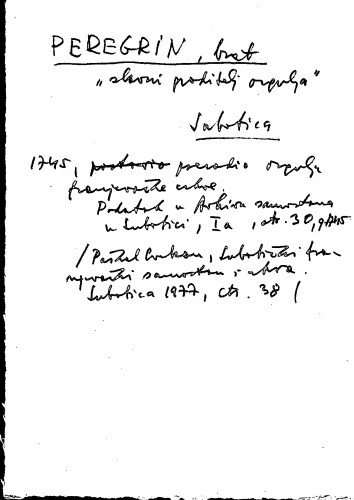 PEREGRIN, brat
"slavni graditelj orgulja"
Subotica
1745, postavio preradio orgulje
franjevačke crkve.
Podatak u Arhivu samostana
u Subotici, Ia, str. 30, g. 1745
/Paškal Cvekan, Subotički fra-
njevački samostan i crkva.
Subotica 1977, str. 38/